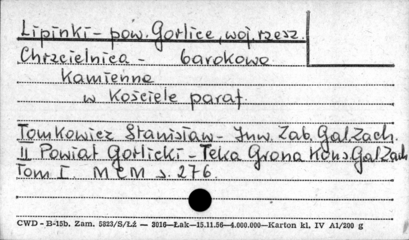 Lipinki - pow. Gorlice, woj. rzesz.
Chrzcielnica - barokowa
kamienna
w Kościele paraf.
Tomkowicz Stanisław - Inw. Zab. Gal Zach.
II Powiat Gorlicki - Teka Grona Kons. Gal Zach
Tom I. MCM s. 276.
CWD - B-15b. Zam. 5823/S/Łź — 3016—Łak—15.11.56—4.000.000—Karton kl. IV A1/200 g